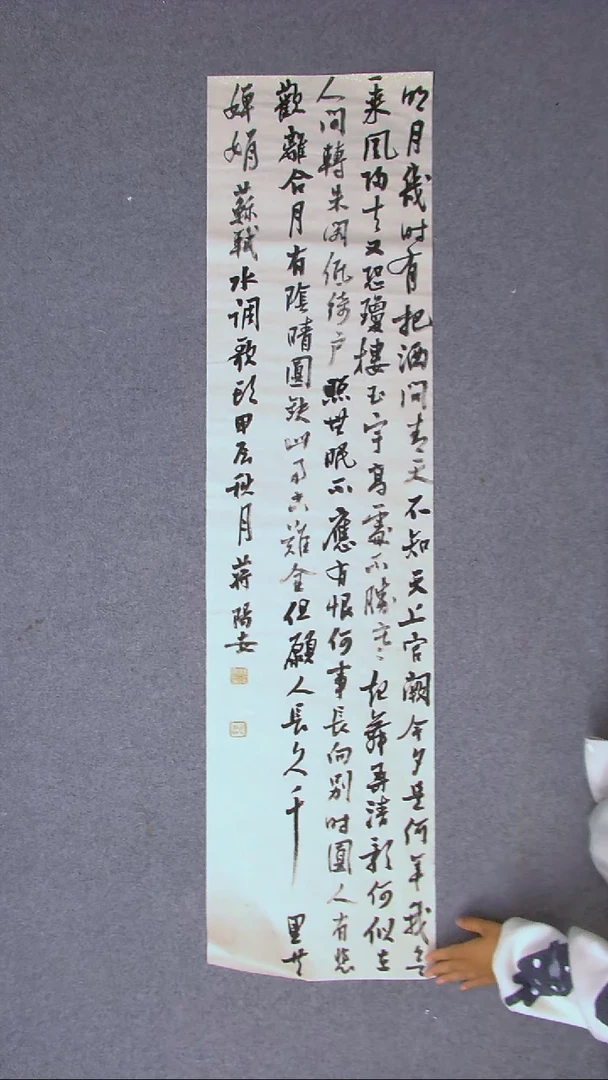 明月幾时有把酒问青天不知天上宫阙今夕是何年我欲
乘风归去又恐瓊樓玉宇高處不勝寒起舞弄清影何似在
人间轉朱阁低绮户照無眠不應有恨何事長向别时圓人有悲
歡離合月有陰晴圓缺此事古難全但願人長久千里共
婵娟 蘇軾水调歌头甲辰秋月蒋